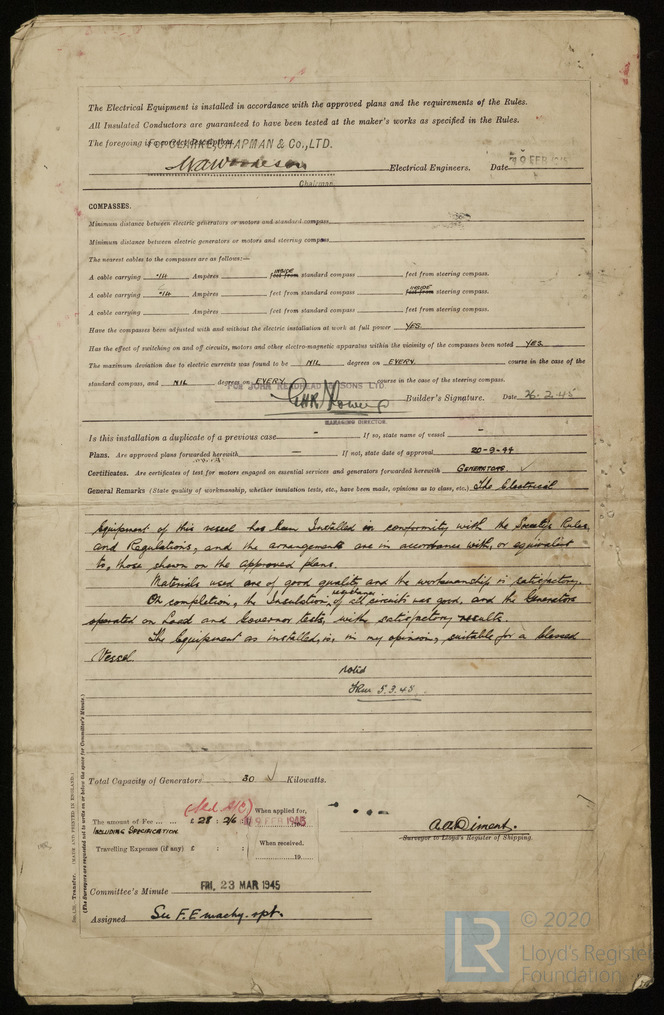 The Electrical Equipment is installed in accordance with the approved plans and the requirements of the Rules.
All Insulated Conductors are guaranteed to have been tested at the maker's works as specified in the Rules.
The foregoing is a correct description.
For CLARKE, CHAPMAN & Co., LTD.
Electrical Engineers. Date 19 FEB 1945
Chairman
COMPASSES.
Minimum distance between electric generators or motors and standard compass
Minimum distance between electric generators or motors and steering compass
The nearest cables to the compasses are as follows:—
A cable carrying .14 Ampères INSIDE feet from standard compass feet from steering compass.
A cable carrying .14 Ampères feet from standard compass INSIDE feet from steering compass.
A cable carrying Ampères feet from standard compass feet from steering compass.
Have the compasses been adjusted with and without the electric installation at work at full power YES
Has the effect of switching on and off circuits, motors and other electro-magnetic apparatus within the vicinity of the compasses been noted YES.
The maximum deviation due to electric currents was found to be NIL degrees on EVERY. course in the case of the
standard compass, and NIL degrees on EVERY course in the case of the steering compass.
FOR JOHN READHEAD & SONS LTD.
Builder's Signature. Date 26.2.45
MANAGING DIRECTOR.
Is this installation a duplicate of a previous case - If so, state name of vessel -
Plans. Are approved plans forwarded herewith — If not, state date of approval 20-9-44
Certificates. Are certificates of test for motors engaged on essential services and generators forwarded herewith GENERATORS ✓
General Remarks (State quality of workmanship, whether insulation tests, etc., have been made, opinions as to class, etc.) The Electrical
Equipment of this vessel has been Installed in conformity with the Society's Rules
and Regulations, and the arrangements are in accordance with, or equivalent
to, those shown on the approved plans.
Materials used are of good quality and the workmanship is satisfactory.
On completion, the Insulation resistance of all circuits was good, and the Generators
operated on Load and Governor tests, with satisfactory results.
The Equipment as installed, is, in my opinion, suitable for a classed
Vessel.
Noted
5.3.45.
Total Capacity of Generators 30 Kilowatts.
The amount of Fee ... ... £ 28 : 2/6 : When applied for, 19 FEB 1945
INCLUDING SPECIFICATION
Travelling Expenses (if any) £ : : When received. 19
A.A. Diment.
Surveyor to Lloyd's Register of Shipping.
Committee's Minute FRI, 23 MAR 1945
Assigned See F.E machy. rpt.
Transfer. (MADE AND PRINTED IN ENGLAND.)
(The Surveyors are requested not to write on or below the space for Committee's Minute.)
LR © 2020
Lloyd's Register
Foundation